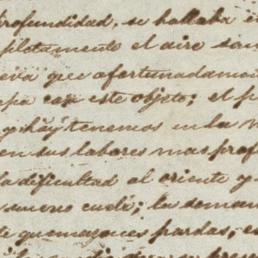 profundidad, se hallaba e
pletamente el aire san
eva que afortunadame
apa con este objeto; el p
y hay tenemos en la m
en sus labores mas prof
la dificultad al oriente y
nuevo cueli; la deman
te quemazones pardas; es